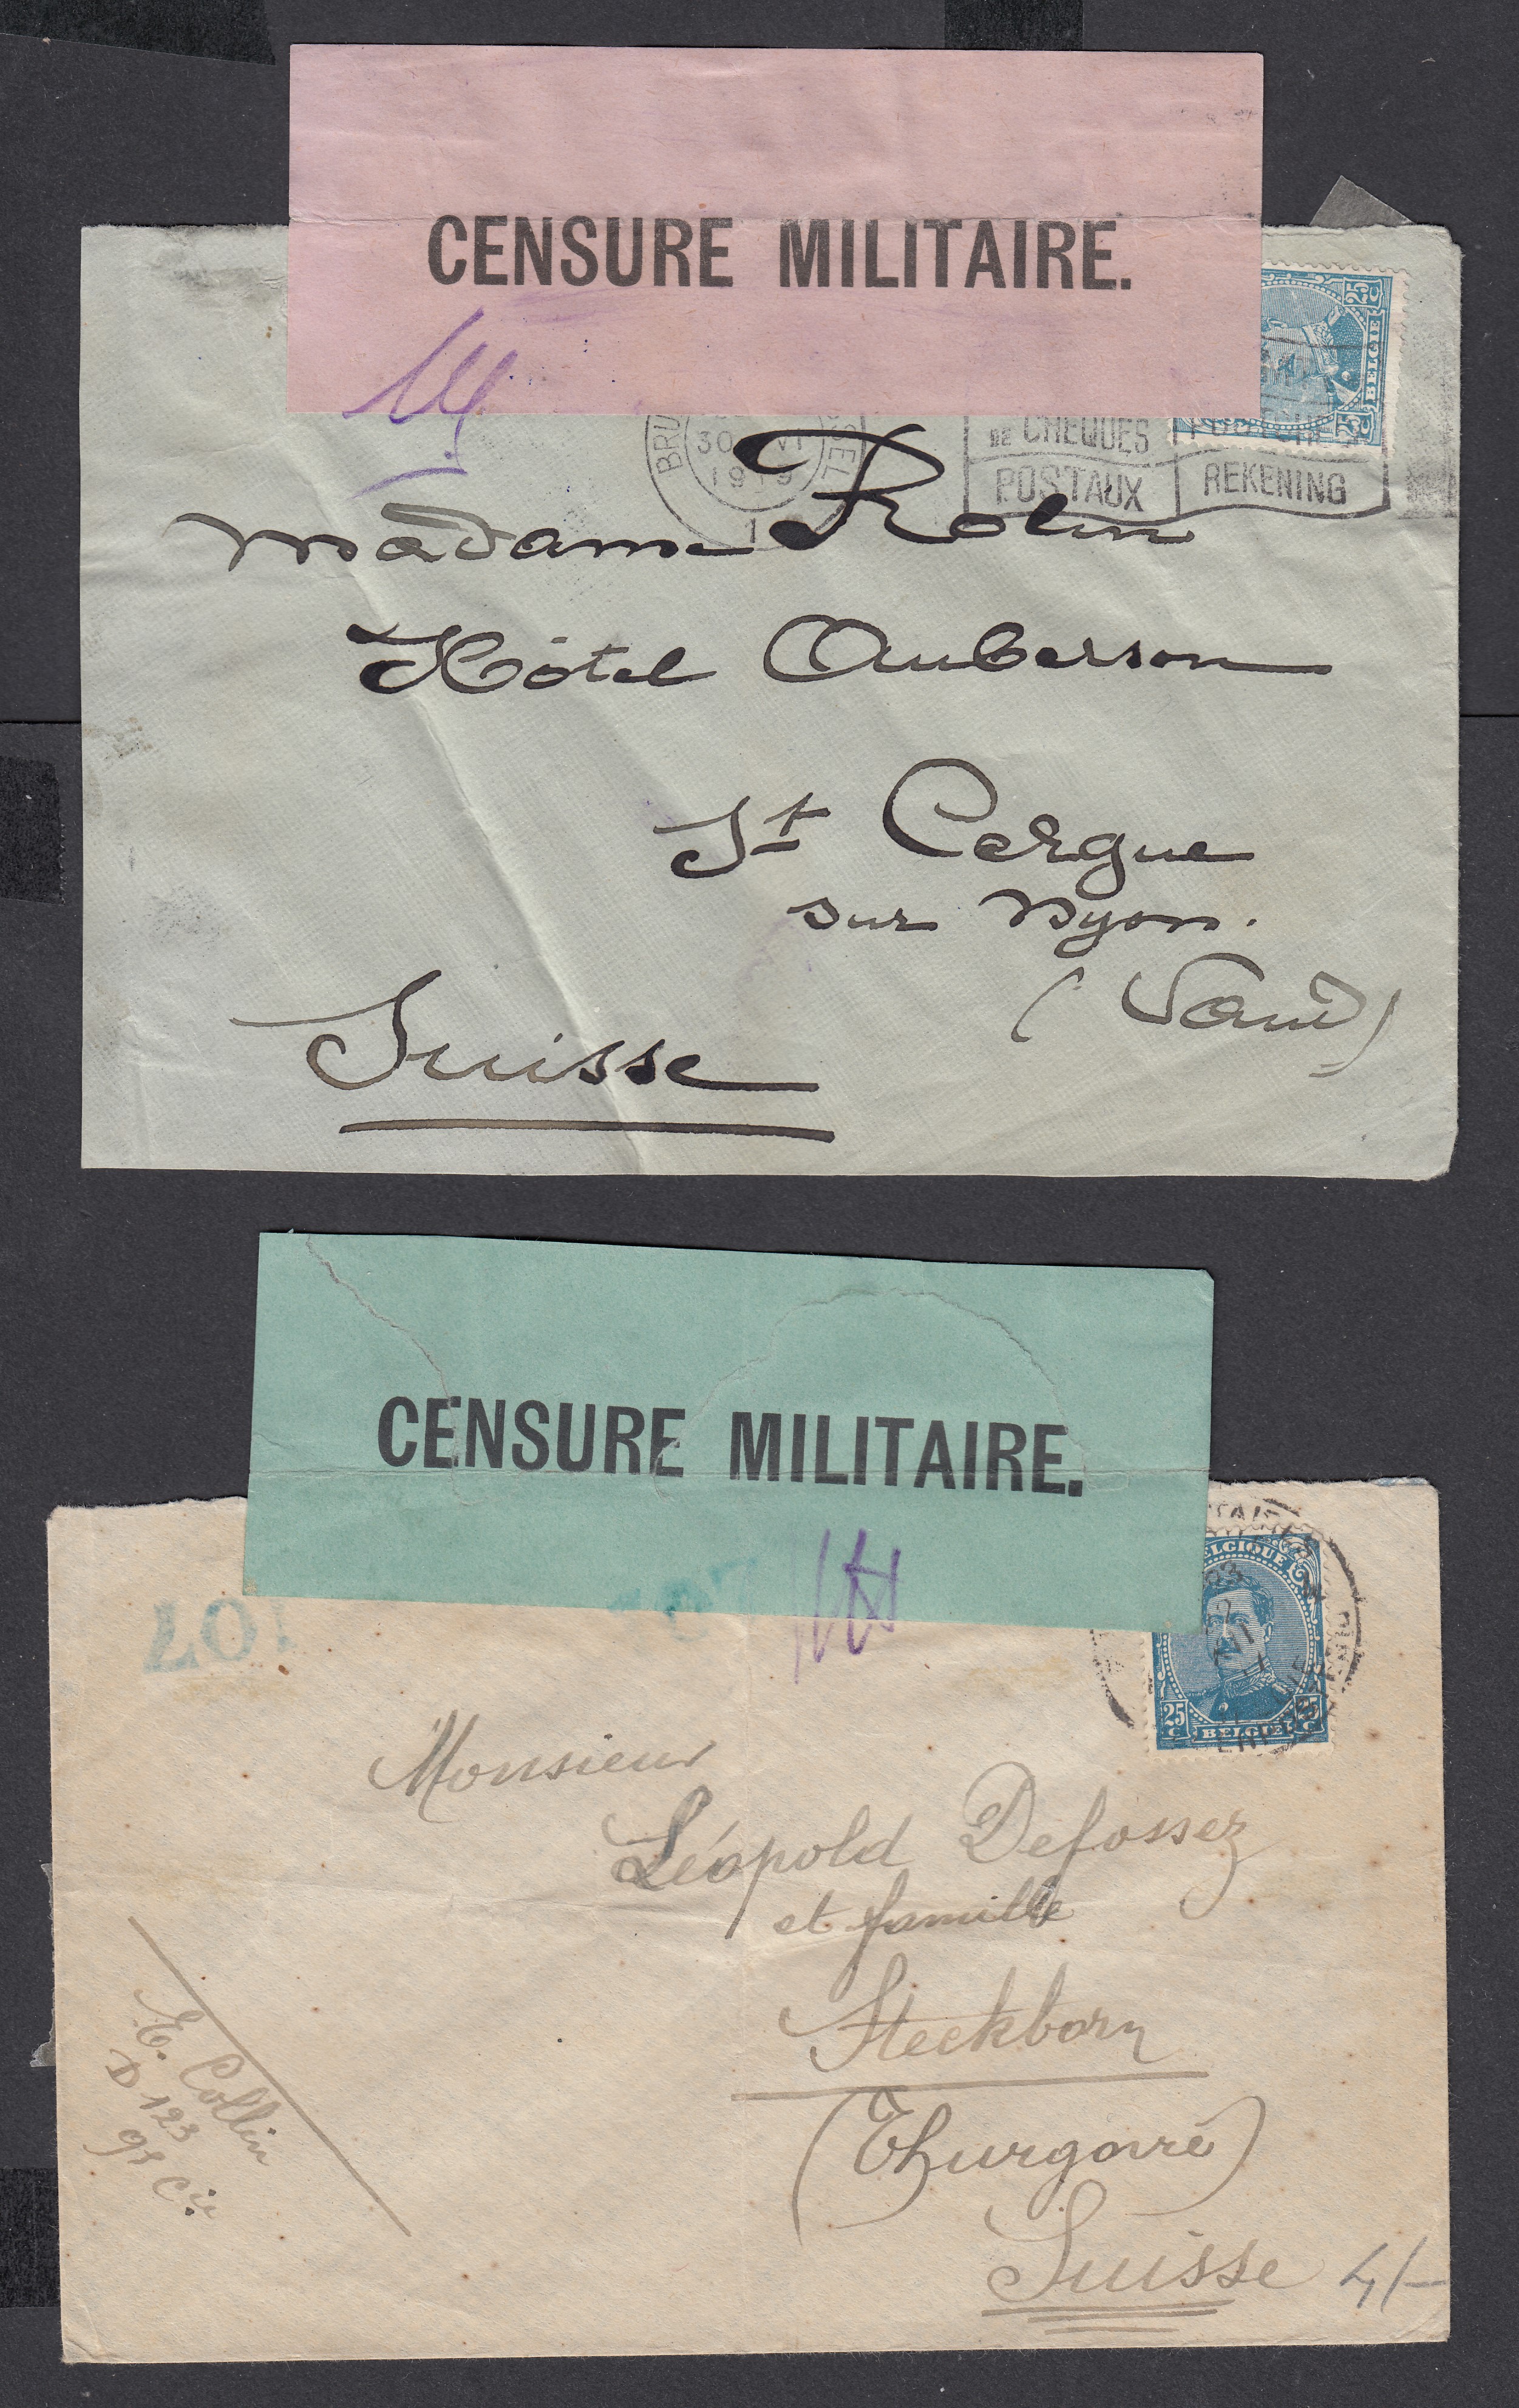 CENSURE MILITAIRE.
25 C
BELGIE
25 C
30 VI
1919
1
DE CHEQUES
POSTAUX
REKENING
Madame Rolin
Hôtel Auberson
St Cergue
sur Nyon.
(Vaud)
Suisse
CENSURE MILITAIRE.
ELGIQUE
25 C
BELGIE
25 C
107
Monsieur
Léopold Defossez
et famille
Steckborn
(Thurgovie)
Suisse
4/-
E. Collin
D 123
9e Cie